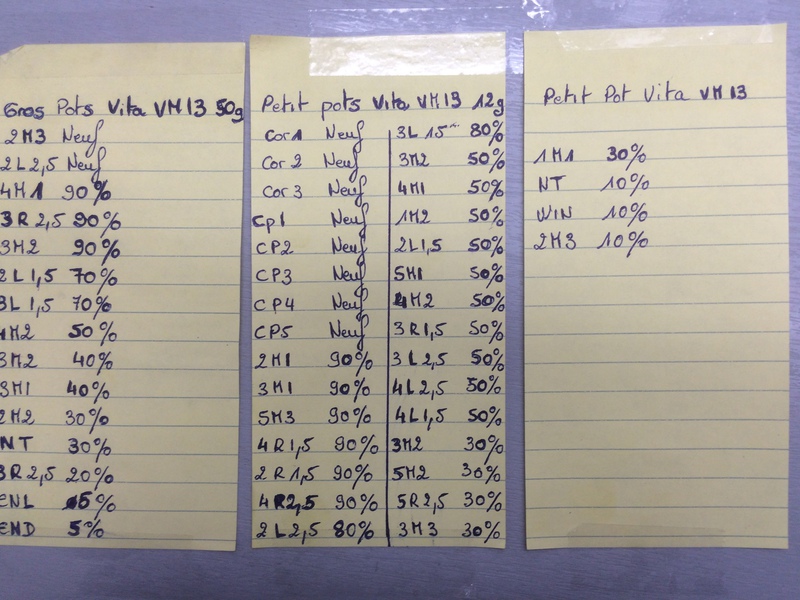 Gros Pots Vita VM13 50g
2M3 Neuf
2L2,5 Neuf
4M1 90%
3R2,5 90%
3M2 90%
2L1,5 70%
3L1,5 70%
4M2 50%
3M2 40%
3M1 40%
2M2 30%
NT 30%
3R2,5 20%
ENL 5%
END 5%
Petit pots Vita VM13 12g
Cor1 Neuf
Cor2 Neuf
Cor3 Neuf
Cp1 Neuf
CP2 Neuf
CP3 Neuf
CP4 Neuf
CP5 Neuf
2M1 90%
3M1 90%
5M3 90%
4R1,5 90%
2R1,5 90%
4R2,5 90%
2L2,5 80%
3L15 80%
3M2 50%
4M1 50%
1M2 50%
2L1,5 50%
5M1 50%
4M2 50%
3R1,5 50%
3L2,5 50%
4L2,5 50%
4L1,5 50%
3M2 30%
5M2 30%
5R2,5 30%
3M3 30%
Petit Pot Vita VM13
1M1 30%
NT 10%
WIN 10%
2M3 10%